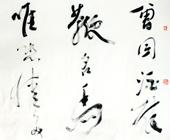 曾因酒醉
鞭名馬
唯恐情多